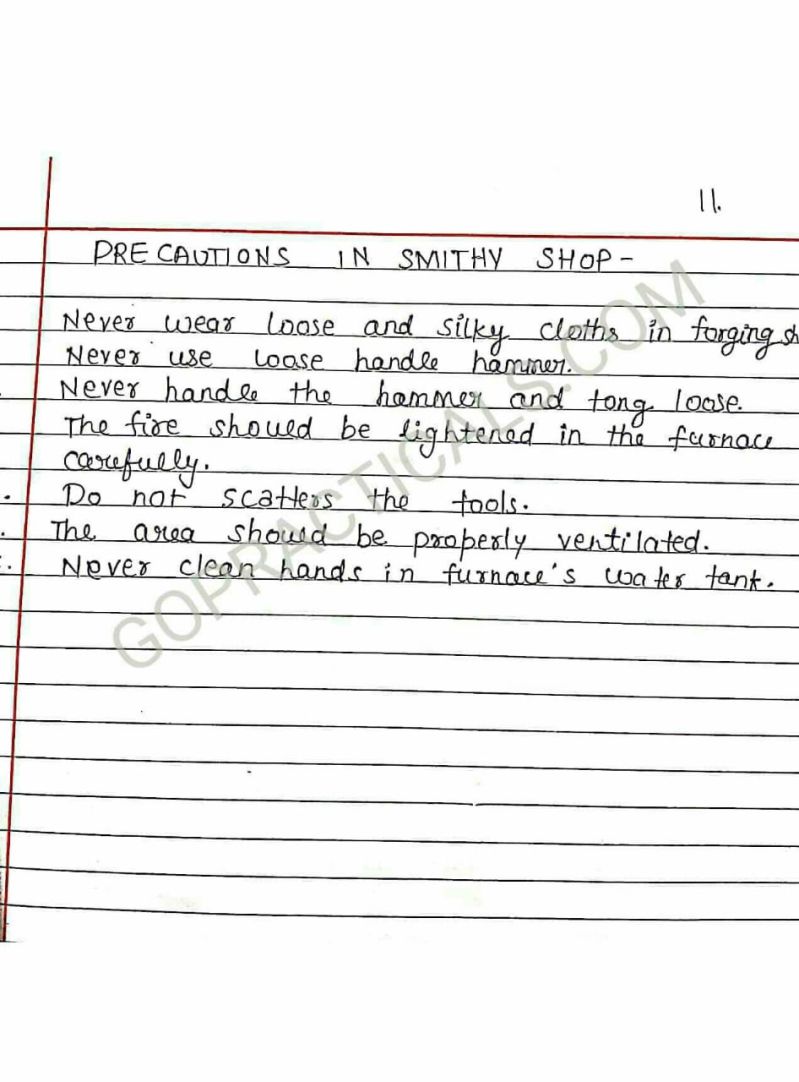 11.
PRECAUTIONS IN SMITHY SHOP -
Never wear loose and silky cloths in forging sh
Never use loose handle hammer.
Never handle the hammer and tong loose.
The fire should be lightened in the furnace
carefully.
. Do not scatters the tools.
. The area should be properly ventilated.
. Never clean hands in furnace's water tank.
GOPRACTICALS.COM